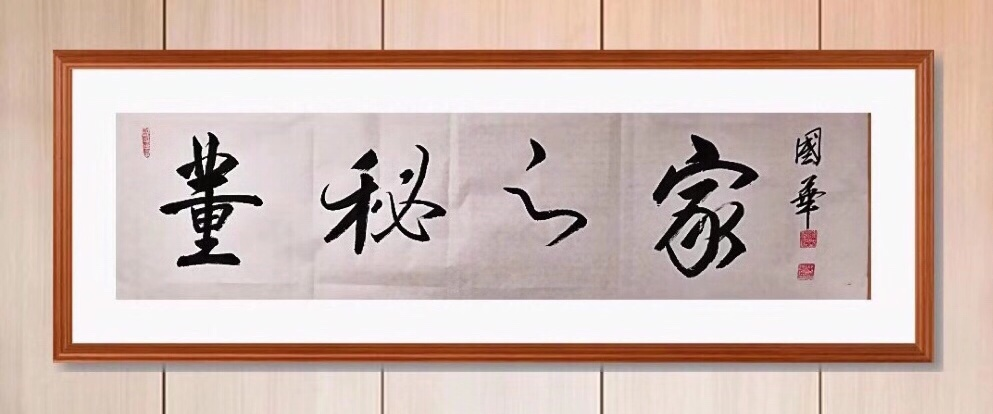 董秘之家
國華